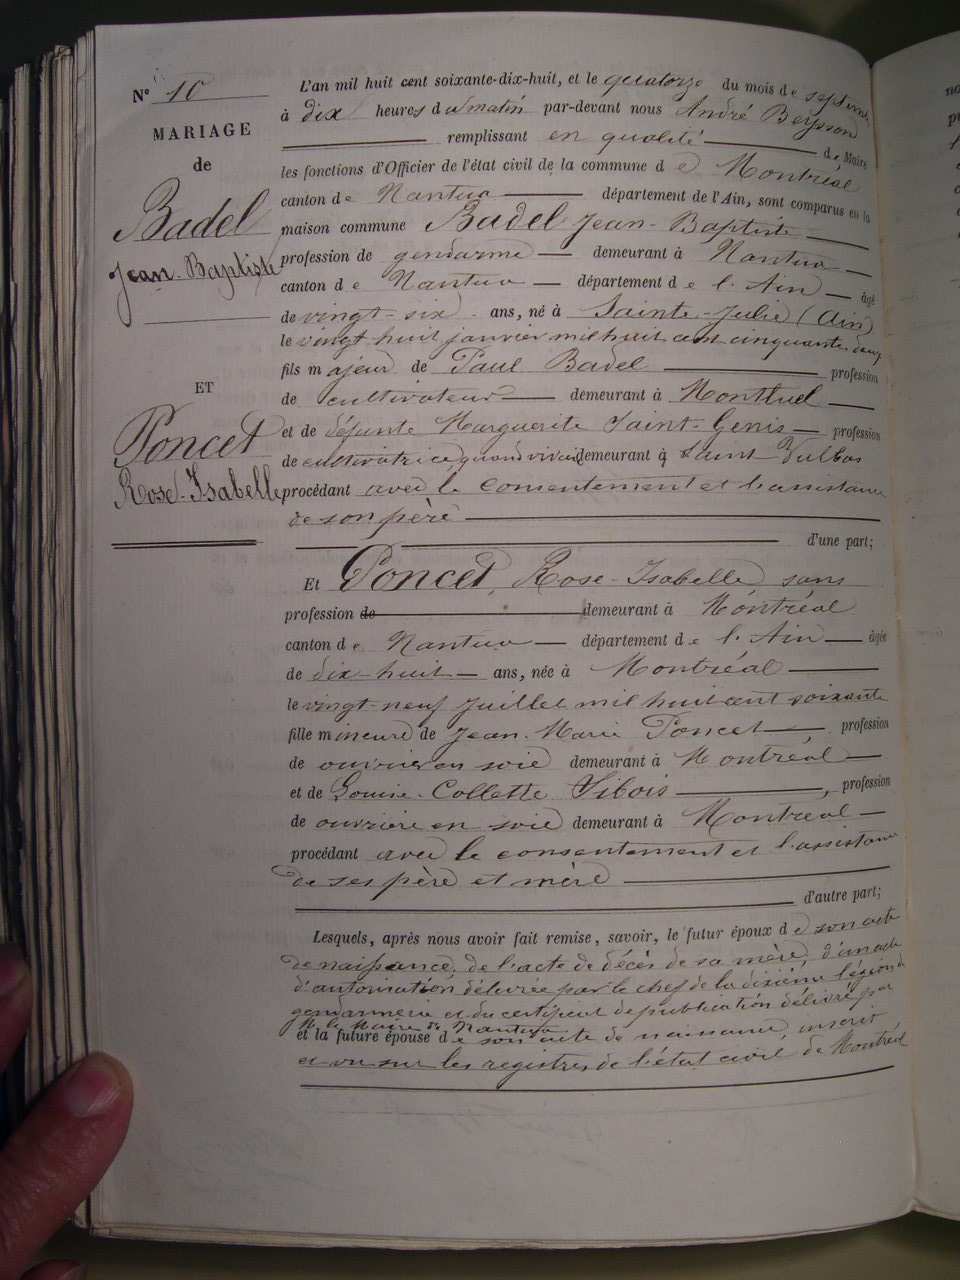 N° 10
MARIAGE
de
Badel
Jean-Baptiste
ET
Poncet
Rose-Isabelle
L'an mil huit cent soixante-dix-huit, et le quatorze du mois de septembre
à dix heures du matin par-devant nous André Beysson
remplissant en qualité de Maire
les fonctions d'Officier de l'état civil de la commune de Montréal
canton de Nantua département de l'Ain, sont comparus en la
maison commune Badel Jean-Baptiste
profession de gendarme demeurant à Nantua
canton de Nantua département de l'Ain âgé
de vingt-six ans, né à Sainte-Julie (Ain)
le vingt huit janvier mil huit cent cinquante-deux
fils majeur de Paul Badel profession
de cultivateur demeurant à Montluel
et de défunte Marguerite Saint-Genis profession
de cultivatrice quand vivait demeurant à Saint Vulbas
procédant avec le consentement et l'assistance
de son père
d'une part;
Et Poncet, Rose-Isabelle, sans
profession de demeurant à Montréal
canton de Nantua département de l'Ain âgée
de dix-huit ans, née à Montréal
le vingt-neuf Juillet mil huit cent soixante
fille mineure de Jean-Marie Poncet, profession
de ouvrier en soie demeurant à Montréal
et de Louise-Collette Sibois, profession
de ouvrière en soie demeurant à Montréal
procédant avec le consentement et l'assistance
de ses père et mère
d'autre part;
Lesquels, après nous avoir fait remise, savoir, le futur époux de son acte
de naissance, de l'acte de décès de sa mère, d'un acte
d'autorisation délivrée par le chef de la dixième légion de
gendarmerie et du certificat de publication délivré par
M. le Maire de Nantua
et la future épouse de son acte de naissance, inscrit
et vu sur les registres de l'état civil de Montréal